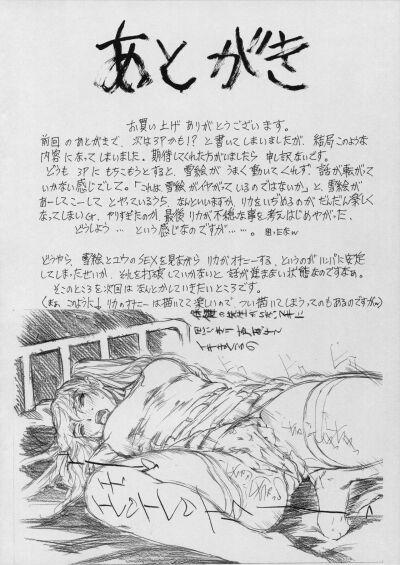 あとがき
お買い上げありがとうございます。
前回のあとがきで、次は3Pかも!?と書いてしまいましたが、結局このような
内容になってしまいました。期待してくれた方がいましたら申し訳ないです。
どうも3Pにもちこもうとすると、雪絵がうまく動いてくれず、話が転がって
いかない感じでして。「これは雪絵がイヤがっているのではないか」と、雪絵が
あーしてこーしてとやっているうち、なんといいますか、リカをいぢめるのがだんだん楽しく
なってしまいw、やりすぎたのか、最後リカが不穏な事を考えはじめやがった、
どうしよう…という感じなのですが…。
どうやら、雪絵とユウのSEXを見ながらリカがオナニーする、というのがいいバンバに安定
してしまったせいか、それを打破していかないと話が進まない状態なのですなぁ。
そこのところを次回はなんとかしていきたいところです。
(まぁ、このように↓リカのオナニーは描いてて楽しいので、つい描いてしまうってのもあるのですがw)